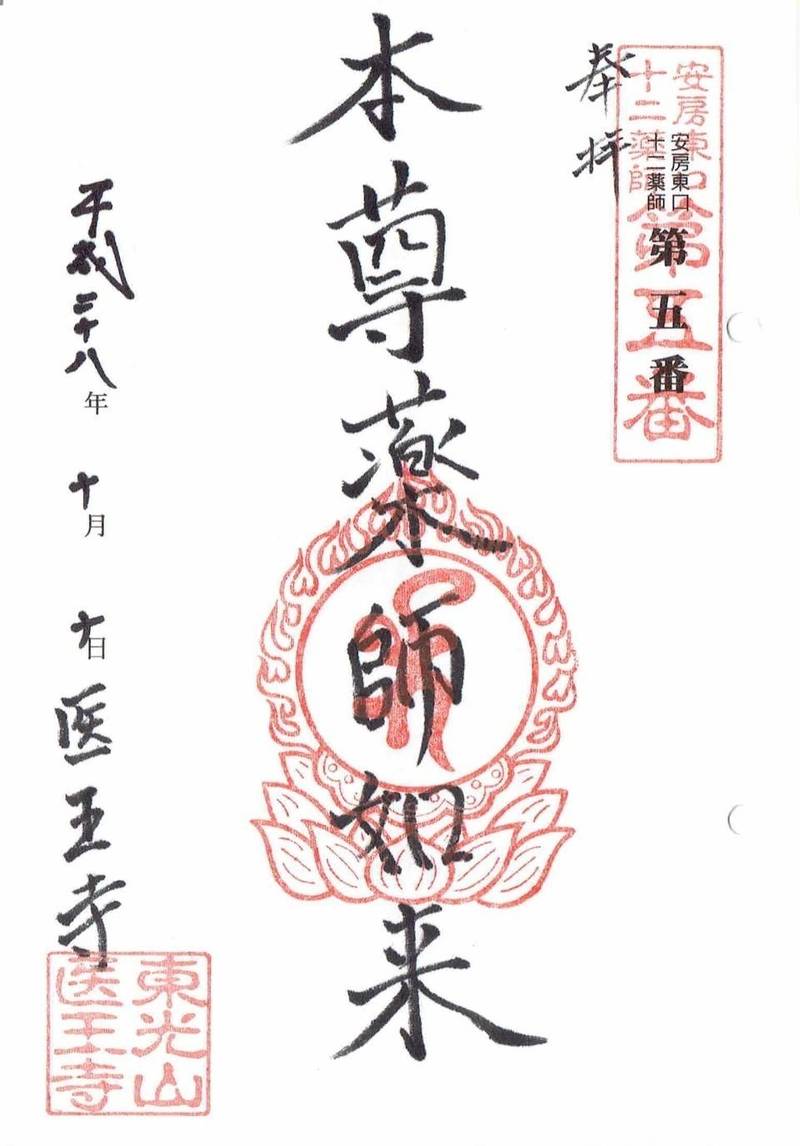 奉拝
安房東口
十二薬師
第五番
安房東口
十二薬師
第五番
本尊薬師如来
平成二十八年 十月 十日
医王寺
東光山
医王寺